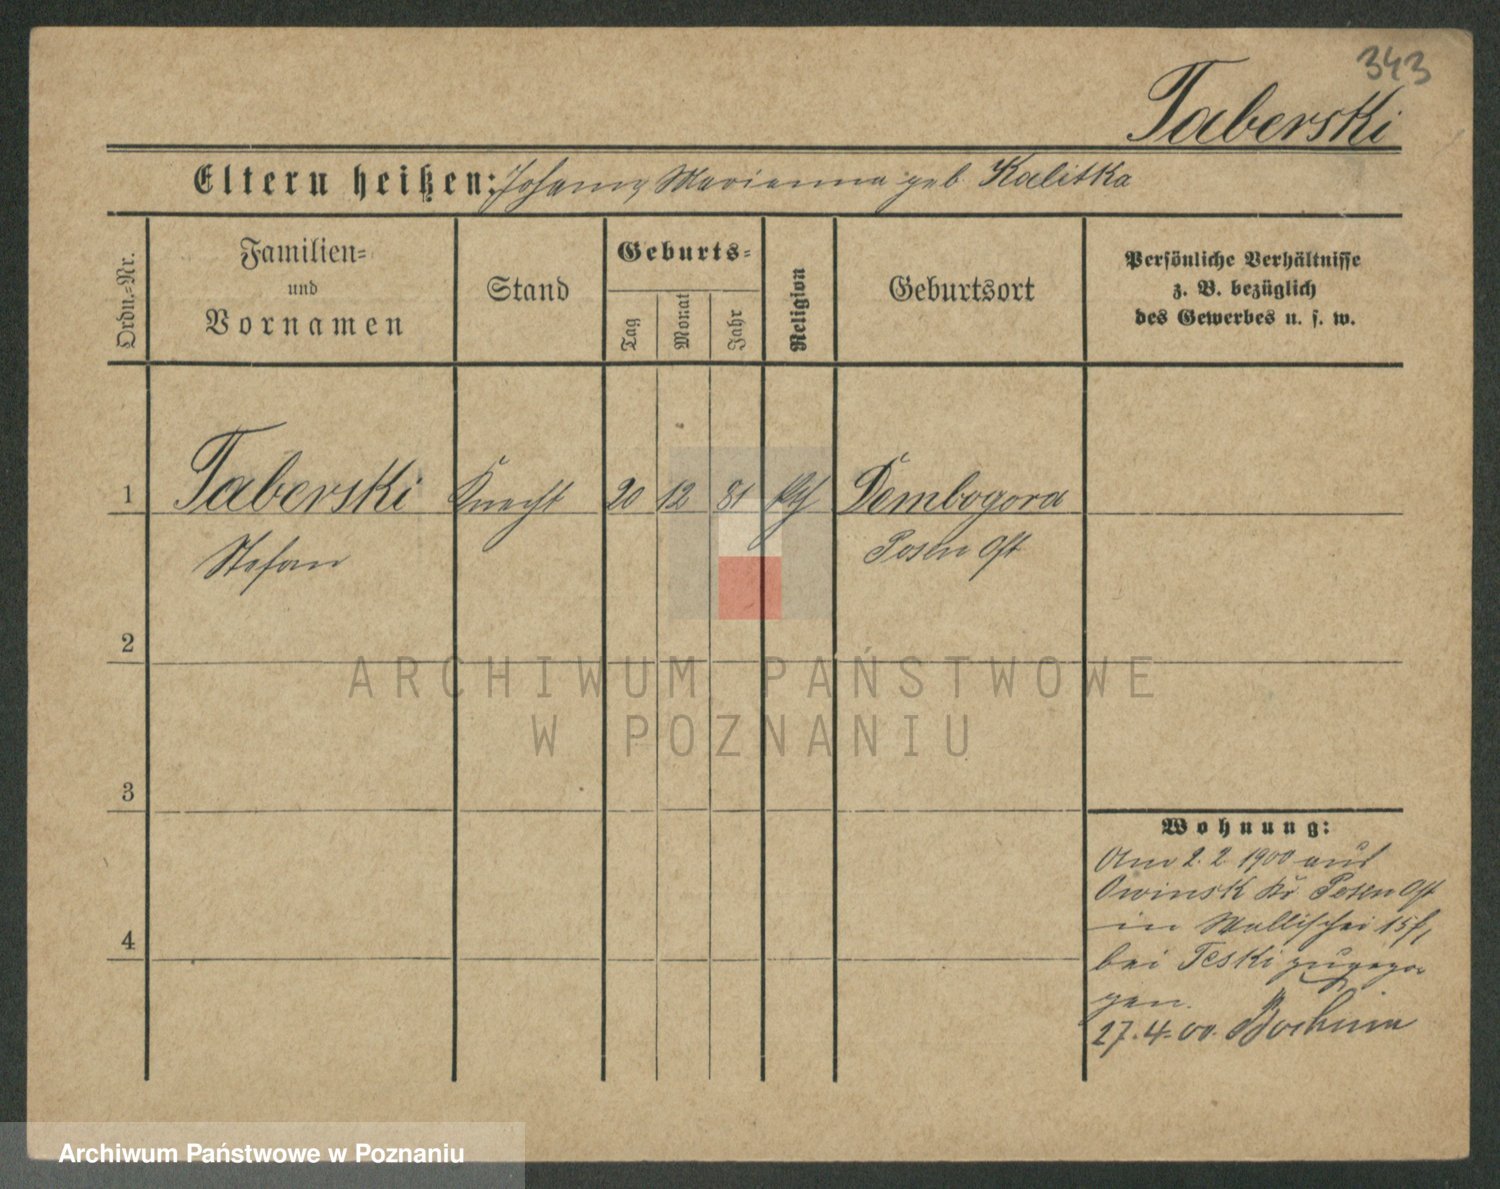 343
Taberski
Eltern heißen: Johann, Marianna geb. Kalitka
Ordn.-Nr.
Familien-
und
Vornamen
Stand
Geburts-
Tag
Monat
Jahr
Religion
Geburtsort
Persönliche Verhältnisse
z. B. bezüglich
des Gewerbes u. s. w.
1 Taberski Knecht 20 12 81 kth Dembogora
Stefan Posen Ost
2
3
4
Wohnung:
Am 2. 2. 1900 aus
Owinsk Kr. Posen Ost
in Wallischei 15
bei Teski zugezo-
gen.
27.4.00. Bochum
ARCHIWUM PAŃSTWOWE
W POZNANIU
Archiwum Państwowe w Poznaniu